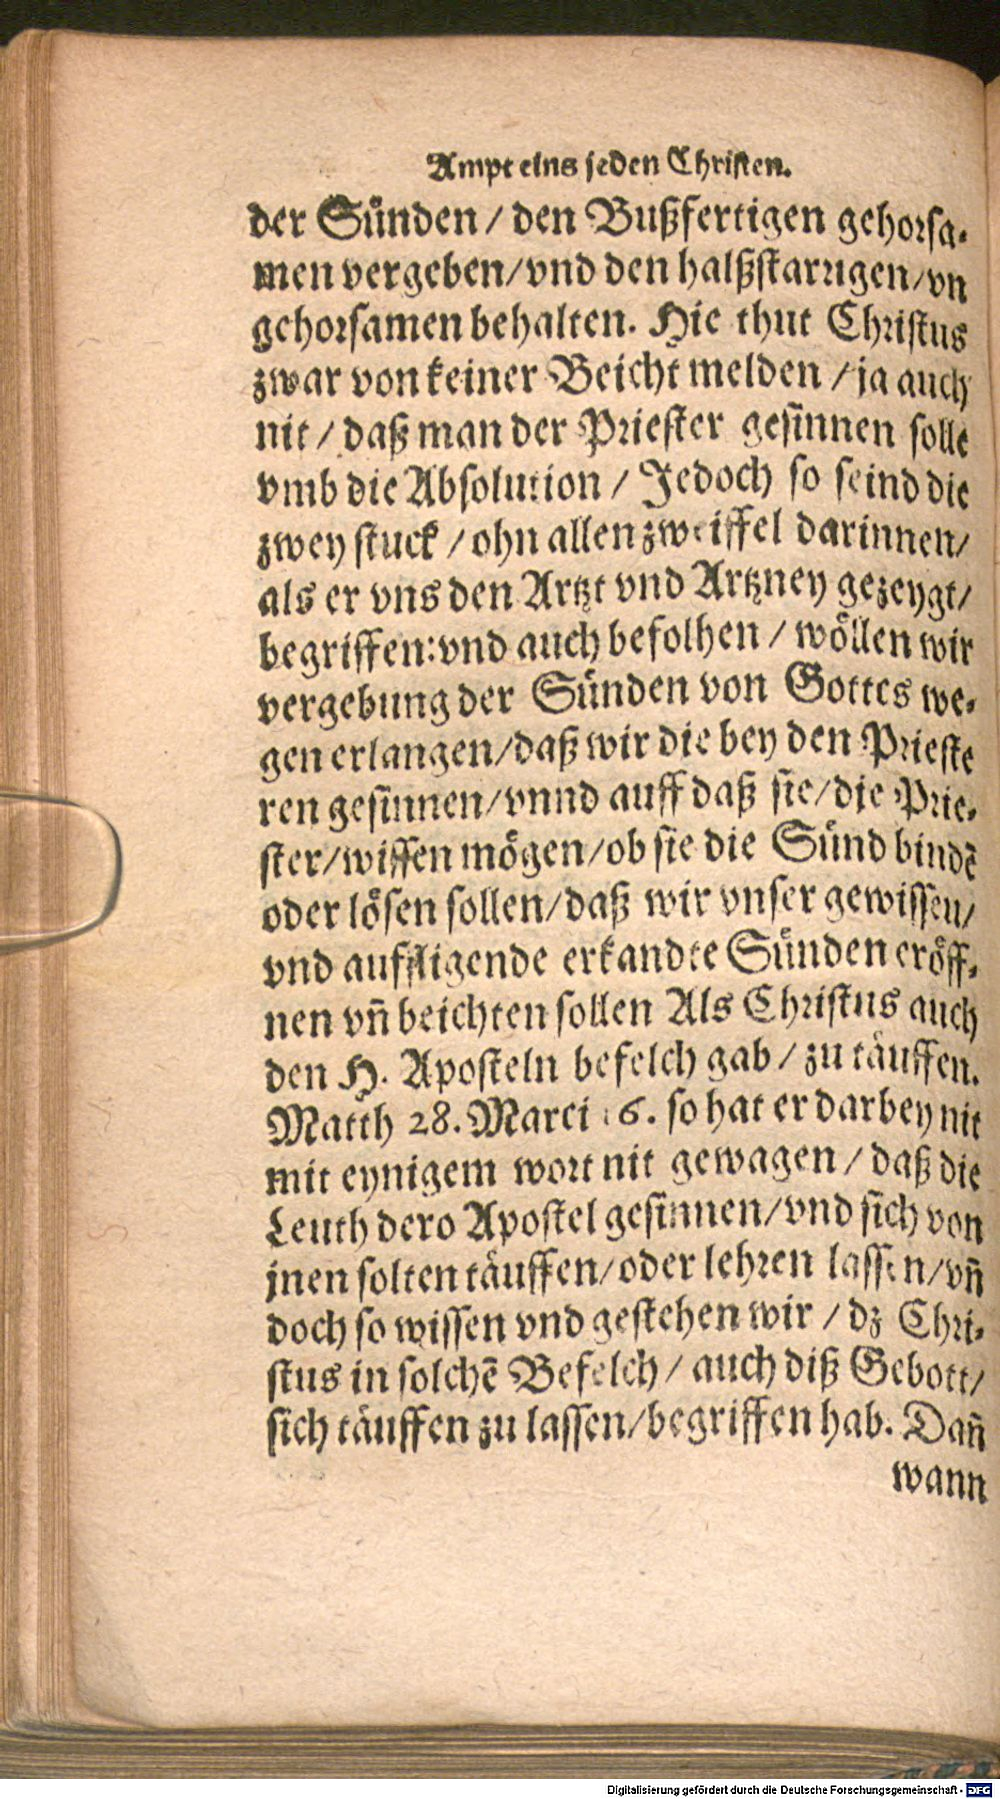 Ampt eins jeden Christen.
der Sünden / den Bußfertigen gehorsa-
men vergeben/vnd den halßstarrigen/vn
gehorsamen behalten. Hie thut Christus
zwar von keiner Beicht melden / ja auch
nit / daß man der Priester gesinnen solle
vmb die Absolution / Jedoch so seind die
zwey stuck / ohn allen zweiffel darinnen/
als er vns den Artzt vnd Artzney gezeygt/
begriffen: vnd auch befolhen / wöllen wir
vergebung der Sünden von Gottes we-
gen erlangen/daß wir die bey den Prieste
ren gesinnen/vnnd auff daß sie/die Prie-
ster/wissen mögen/ob sie die Sünd bindē
oder lösen sollen/daß wir vnser gewissen/
vnd auffligende erkandte Sünden eröff-
nen vñ beichten sollen Als Christus auch
den H. Aposteln befelch gab / zu täuffen.
Matth 28. Marci 16. so hat er darbey nit
mit eynigem wort nit gewagen / daß die
Leuth dero Apostel gesinnen/vnd sich von
jnen solten täuffen/oder lehren lassen/vñ
doch so wissen vnd gestehen wir / dz Chri-
stus in solchē Befelch / auch diß Gebott/
sich täuffen zu lassen/begriffen hab. Dañ
wann
Digitalisierung gefördert durch die Deutsche Forschungsgemeinschaft - DFG